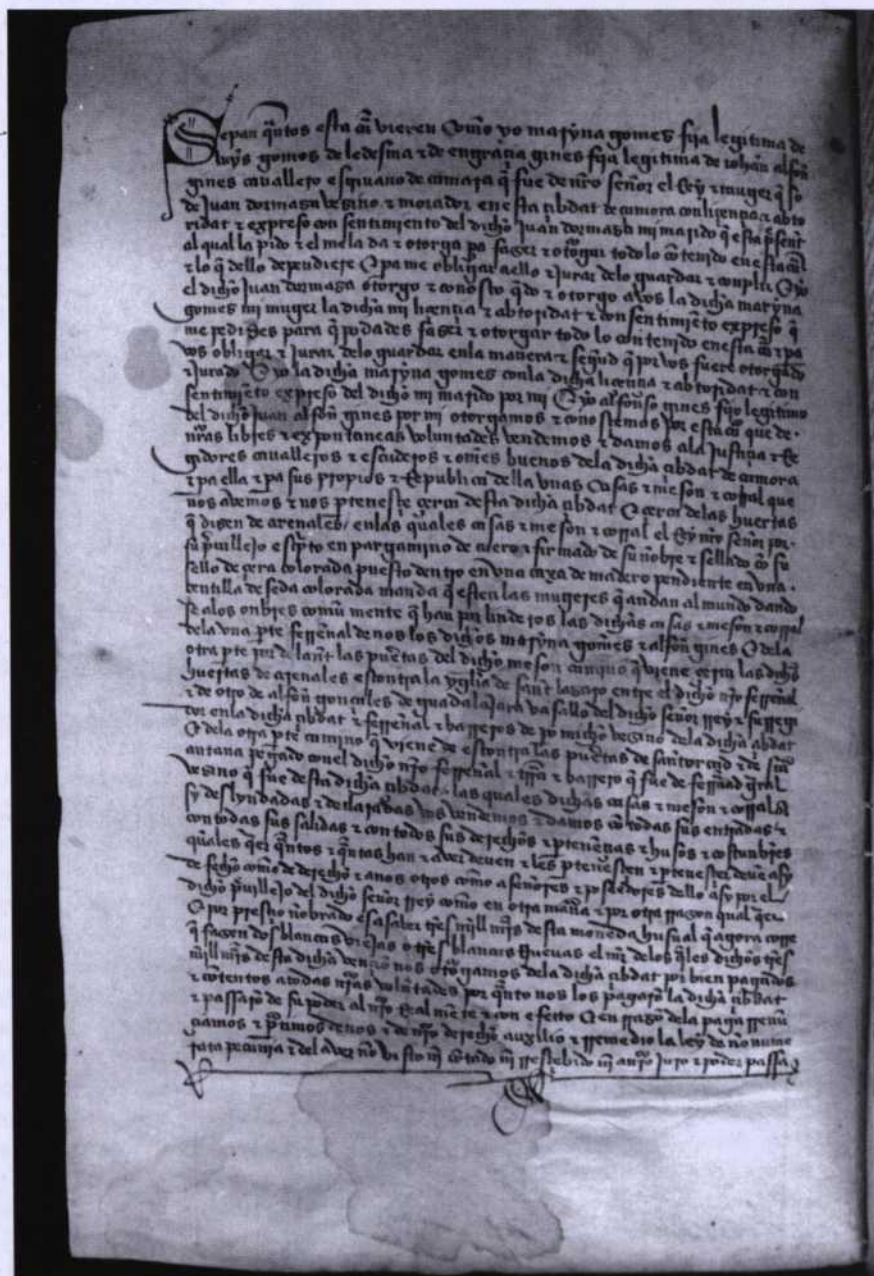 Sepan q̃ntos esta cã vieren Como yo marýna gomes fija legitima de
luýs gomes de ledesma ⁊ de engraçia gines fija legitima de iohan alfoñ
gines cavallero escrivano de camara q̃ fue de nr̃o señor el Rey ⁊ muger q̃ so
de Juan dormaga vezino ⁊ morador en esta çibdat de çamora con liçençia ⁊ abto
ridat ⁊ expreso consentimento del dicho Juan dormaga mi marido q̃ esta p̃sente
al qual la pido ⁊ el me la da ⁊ otorga pa faser ⁊ otorgar todo lo cõtenido en esta cã
⁊ lo q̃ dello dependiere E pa me obligar a ello ⁊ Jurar de lo guardar ⁊ conplir E yo
el dicho Juan dormaga otorgo ⁊ conosco q̃ do ⁊ otorgo a vos la dicha marýna
gomes mi muger la dicha mi liçençia ⁊ abtoridat ⁊ consentimiẽto expreso q̃
me pedides para q̃ podades faser ⁊ otorgar todo lo contenido en esta cã ⁊ pa
vos obligar ⁊ Jurar de lo guardar en la manera ⁊ segund q̃ por vos fuere otorgado
⁊ Jurado E yo la dicha marýna gomes con la dicha liçençia ⁊ abtoridat ⁊ con
sentimiẽto expreso del dicho mi marido por mi E yo alfonso gines fijo legitimo
del dicho Juan alfoñ gines por mi otorgamos ⁊ conosçemos por esta cã que de
nr̃as libres ⁊ expontaneas voluntades vendemos ⁊ damos a la Justiçia ⁊ Re
gidores cavalleros ⁊ escuderos ⁊ omẽs buenos de la dicha çibdat de çamora
⁊ pa ella ⁊ pa sus propios ⁊ Republica della vnas casas ⁊ meson ⁊ corral que
nos avemos ⁊ nos p̃teneste çerca desta dicha çibdat E çerca de las huertas
q̃ disen de arenales / en las quales casas ⁊ meson ⁊ corral el Rey nr̃o señor por
su p̃uillejo escp̃to en pargamino de cuero ⁊ firmado de su nõbre ⁊ sellado cõ su
sello de çera colorada puesto dentro en vna caxa de madero pendiente en vna
çentilla de seda colorada manda q̃ esten las mugeres q̃ andan al mundo dando
se a los onbres comũ mente q̃ han por linderos las dichas casas ⁊ meson ⁊ corral
de la vna p̃te ferreñal de nos los dichos marýna gomes ⁊ alfoñ gines E de la
otra p̃te por delant las puertas del dicho meson camino q̃ viene çerca las dichas
huertas de arenales escontra la yglia de sant lasaro entre el dicho nr̃o ferreñal
⁊ de otro de alfoñ gonçales de guadalajara vasallo del dicho señor rrey ⁊ su rregi
dor en la dicha çibdat ⁊ ferreñal ⁊ barreros de p̃o micho vezino de la dicha çibdat
E de la otra p̃te camino q̃ viene de escontra las puertas de santorcad ⁊ de sãta
antana pegado con el dicho nr̃o ferreñal ⁊ trr̃a ⁊ barrero q̃ fue de ferrnad
vezino q̃ fue desta dicha çibdat. las quales dichas casas ⁊ meson ⁊ corrales
sy deslyndadas ⁊ declaradas vos vendemos ⁊ damos cõ todas sus entradas ⁊
con todas sus salidas ⁊ con todos sus derechos ⁊ p̃tenençias ⁊ husos ⁊ costunbres
quales q̃er q̃ntos ⁊ q̃ntas han ⁊ aver deven ⁊ les p̃tenesçen ⁊ p̃tenesçer deve asy
de fecho como de derecho ⁊ a nos otros como a señores ⁊ poseedores dello asy por el
dicho p̃uillejo del dicho señor rrey como en otra mañra ⁊ por otra rrason qual q̃er
E por presçio nõbrado es a saber tres mill mr̃s desta moneda husual q̃ agora corre
q̃ fagen dos blancas viejas o tres blancas nuevas el mr̃. de los q̃les dichos tres
mill mr̃s desta dicha vençion nos otorgamos de la dicha çibdat por bien pagados
⁊ cõtentos a todas nr̃as voluntades por q̃nto nos los pagarõ la dicha çibdat
⁊ passarõ de su poder al nr̃o Real mẽte ⁊ con efetto E en rrasõ de la paga rrenũ
çiamos ⁊ p̃timos de nos ⁊ de nr̃o derecho auxilio ⁊ rremedio la ley de nõ nume
rata pecunia ⁊ del aver nõ visto nĩ cõtado nĩ rresçebido nĩ a nr̃o juro ⁊ poder passa